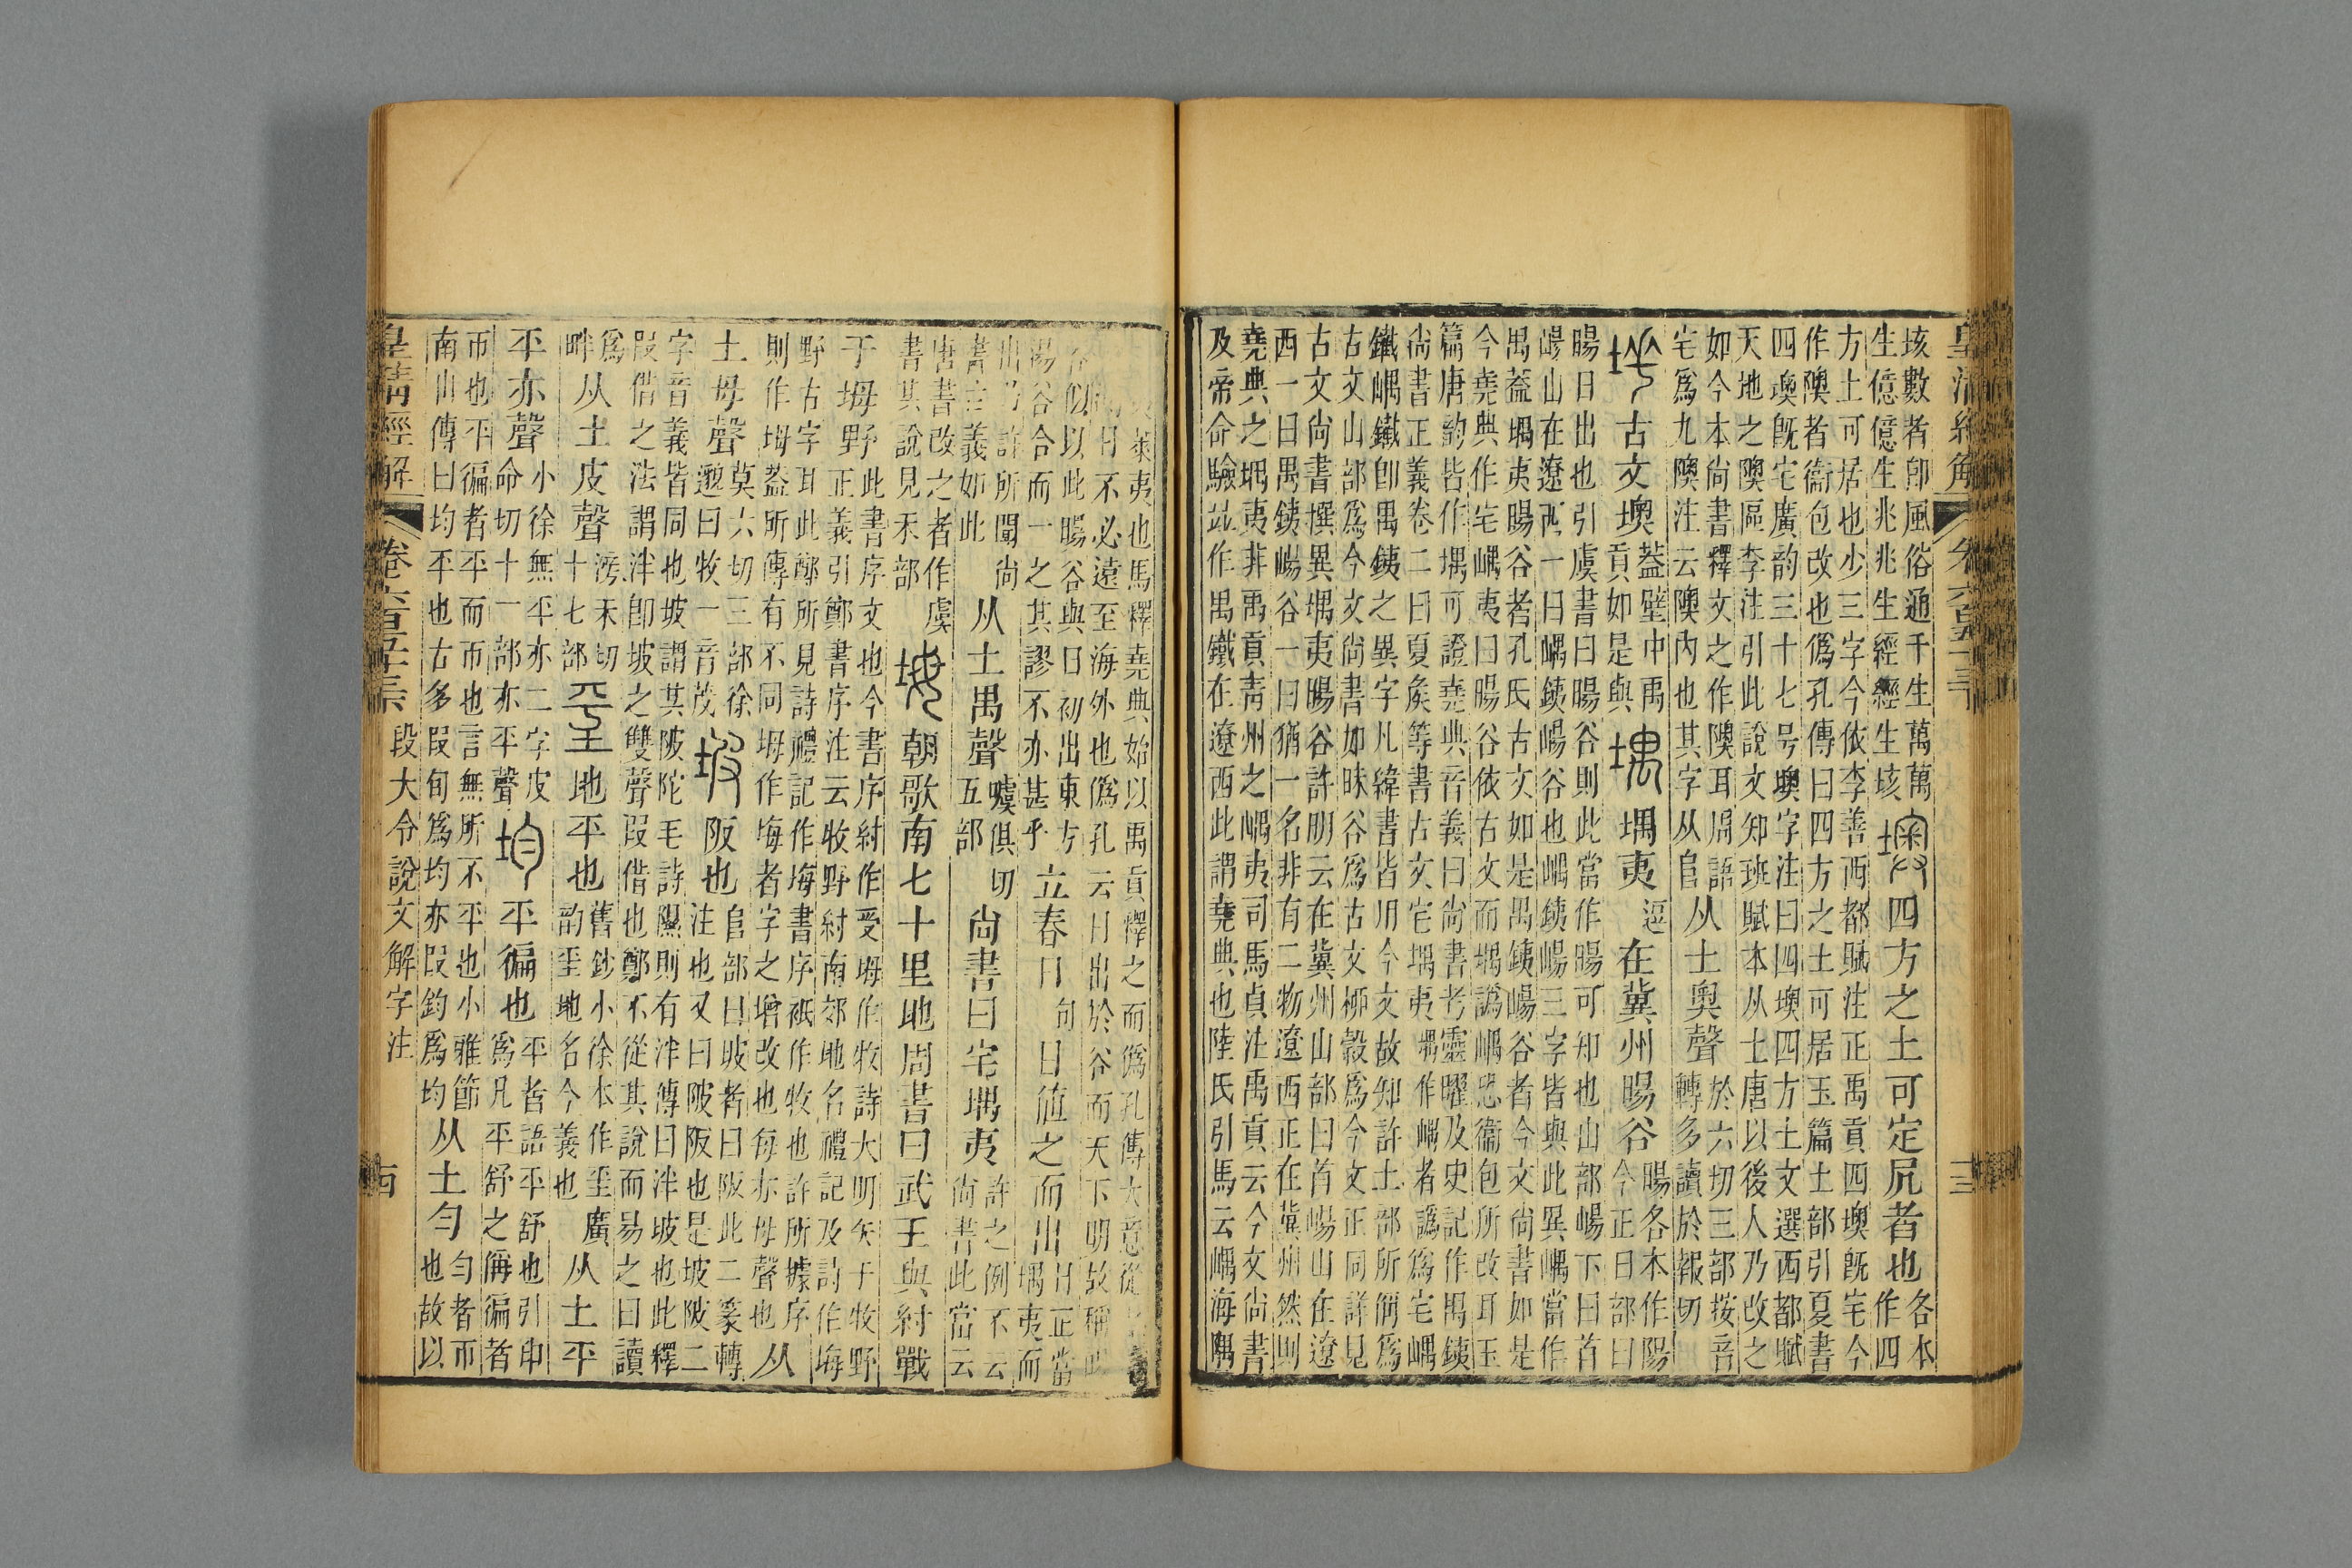 皇清經解
垓數者卽風俗通千生萬萬
生億億生兆兆生經經生垓
墺四方之土可定凥者也
各本
作四
方土可居也少三字今依李善西都賦注正禹貢四墺旣宅今
作隩者衞包改也僞孔傳曰四方之土可居玉篇土部引夏書
四墺旣宅廣韵三十七号墺字注曰四墺四方土文選西都賦
天地之隩區李注引此說文知班賦本从土唐以後人乃改之
如今本尙書釋文之作隩耳周語
宅爲九隩注云隩內也其字从𨸏
从土奧聲
於六切三部按音
轉多讀於報切
古文墺
蓋壁中禹
貢如是與
堣堣夷
逗
在冀州暘谷
暘各本作陽
今正日部曰
暘日出也引虞書曰暘谷則此當作暘可知也山部崵下曰首
崵山在遼西一曰嵎銕崵谷也嵎銕崵三字皆與此異嵎當作
禺葢堣夷暘谷者孔氏古文如是禺銕崵谷者今文尙書如是
今堯典作宅嵎夷曰暘谷依古文而堣譌嵎恐衞包所改耳玉
篇唐韵皆作堣可證堯典音義曰尙書考靈曜及史記作禺銕
尙書正義卷二曰夏矦等書古文宅堣夷堣作嵎者譌爲宅嵎
鐵嵎鐵卽禺銕之異字凡緯書皆用今文故知許土部所偁爲
古文山部爲今文尙書如昧谷爲古文桺穀爲今文正同詳見
古文尙書撰異堣夷暘谷許明云在冀州山部曰首崵山在遼
西一曰禺銕崵谷一曰猶一名非有二物遼西正在冀州然則
堯典之堣夷非禹貢靑州之嵎夷司馬貞注禹貢云今文尙書
及帝命驗竝作禺鐵在遼西此謂堯典也陸氏引馬云嵎海隅
萊夷也馬釋堯典始以禹貢釋之而僞孔傳大意從
日不必遠至海外也僞孔云日出於谷而天下明故稱暘
谷似以此暘谷與日初出東方
湯谷合而一之其謬不亦甚乎
立春日
句
日値之而出
日正當
堣夷而
出乃許所聞尙
書古義如此
从土禺聲
噳俱切
五部
尙書曰宅堣夷
許之例不云
尙書此當云
唐書改之者作虞
書其說見禾部
坶朝歌南七十里地周書曰武王與紂戰
于坶野
此書序文也今書序紂作受坶作牧詩大明矢于牧野
正義引鄭書序注云牧野紂南郊地名禮記及詩作坶
野古字耳此鄭所見詩禮記作坶書序祇作牧也許所據序
則作坶葢所傳有不同坶作坶者字之增改也每亦母聲也
从
土母聲
莫六切三部徐
邈曰牧一音茂
坡阪也
𨸏部曰坡者曰阪此二篆轉
注也又曰陂阪也是坡陂二
字音義皆同也坡謂其陂陀毛詩隰則有泮傳曰泮坡也此釋
叚借之法謂泮卽坡之雙聲叚借也鄭不從其說而易之曰讀
爲
畔
从土皮聲
滂禾切
十七部
坪地平也
舊鈔小徐本作坓廣
韵坓地名今義也
从土平
平亦聲
小徐無平亦二字皮
命切十一部亦平聲
均平徧也
平者語平舒也引申
爲凡平舒之偁徧者
帀也平徧者平而帀也言無所不平也小雅節
南山傳曰均平也古多叚旬爲均亦叚鈞爲均
从土勻
勻者帀
也故以
皇清經解
卷六百五十三
段大令說文解字注